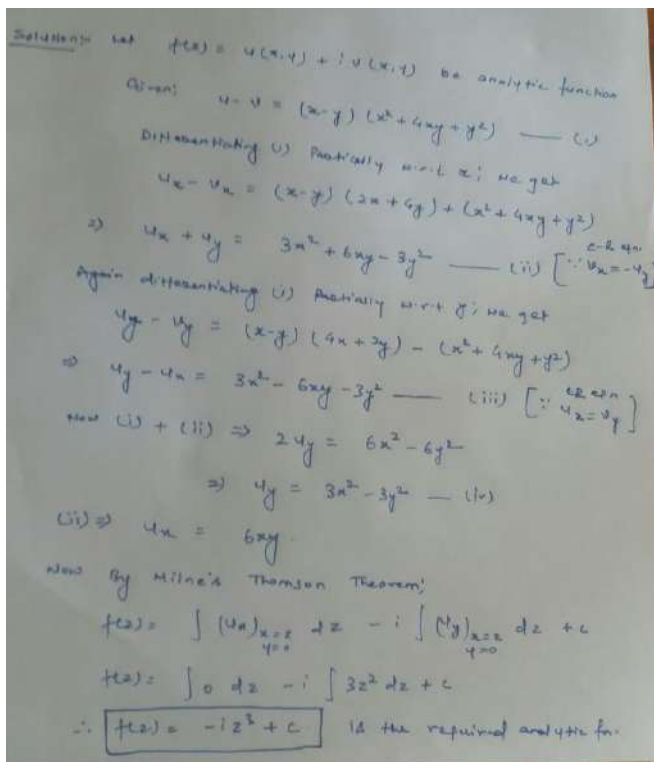 Solution:- Let f(z) = u(x,y) + i v(x,y) be analytic function
Given: u - v = (x-y) (x² + 4xy + y²) —— (i)
Differentiating (i) Partially w.r.t x; we get
u_x - v_x = (x-y) (2x + 4y) + (x² + 4xy + y²)
⇒ u_x + u_y = 3x² + 6xy - 3y² —— (ii) [∵ C-R eqn. v_x = -u_y]
Again differentiating (i) Partially w.r.t y; we get
u_y - v_y = (x-y) (4x + 2y) - (x² + 4xy + y²)
⇒ u_y - u_x = 3x² - 6xy - 3y² —— (iii) [∵ CR eqn u_x = v_y]
Now (i) + (ii) ⇒ 2u_y = 6x² - 6y²
⇒ u_y = 3x² - 3y² — (iv)
(ii) ⇒ u_x = 6xy.
Now By Milne's Thomson Theorem;
f(z) = ∫ (u_x)_{x=z, y=0} dz - i ∫ (u_y)_{x=z, y=0} dz + c
f(z) = ∫ 0 dz - i ∫ 3z² dz + c
∴ f(z) = -i z³ + c is the required analytic fn.